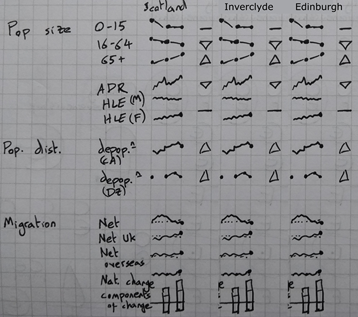 Scotland Inverclyde Edinburgh
Pop size 0-15
16-64
65+
ADR
HLE (M)
HLE (F)
Pop. dist. depop.^
(CA)
depop.^
(DZ)
Migration Net
Net UK
Net
overseas
Nat. change
components
of change